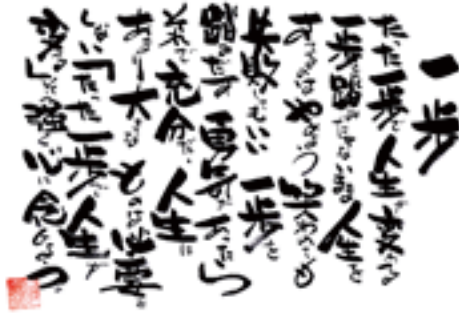 一歩
たった一歩で人生が変わる
一歩を踏みだせない人生を
するのはやめよう笑われても
失敗してもいい一歩を
踏みだす勇気があったら
それで充分だ。人生に
あまり大きなものは必要
しない「たった一歩で人生が
変わる」と強く心に念じよう。